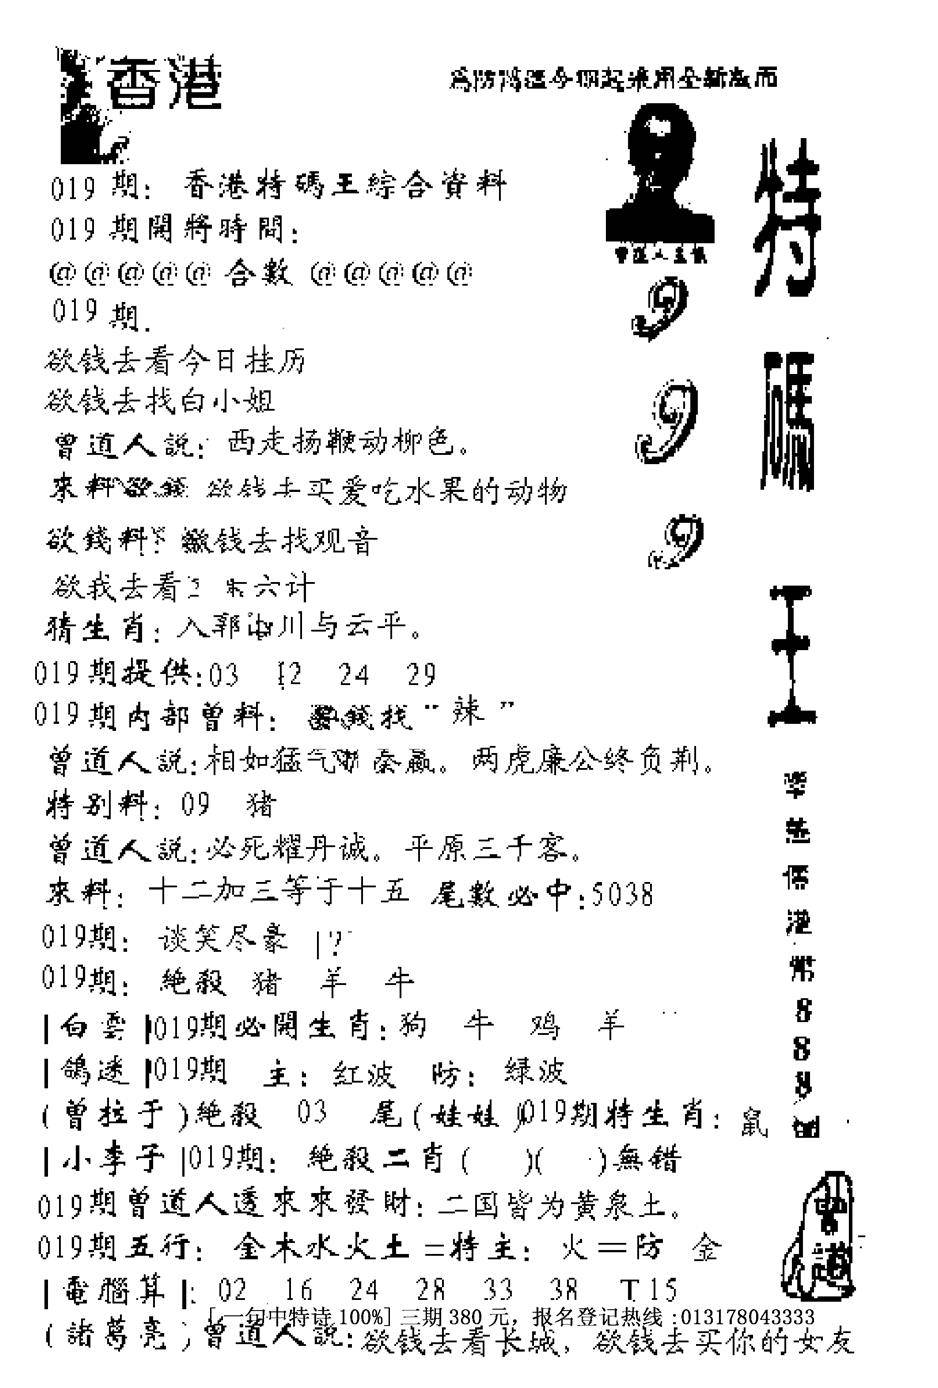 香港
019期：香港特碼王綜合資料
019期開將時間：
@@@@@合數@@@@@
019期.
欲钱去看今日挂历
欲钱去找白小姐
曾道人説：西走扬鞭动柳色。
來料 欲钱去买爱吃水果的动物
欲錢料：欲钱去找观音
欲我去看 六计
猜生肖：入郭 川与云平。
019期提供:03 12 24 29
019期内部曾料： 錢找“辣”
曾道人説:相如猛气 秦嬴。两虎廉公终负荆。
特别料：09 猪
曾道人説:必死耀丹诚。平原三千客。
來料：十二加三等于十五 尾數必中:5038
019期：谈笑尽豪
019期：絶殺 猪 羊 牛
|白雲|019期必開生肖:狗 牛 鸡 羊
|鴿迷|019期 主：紅波 防：绿波
(曾拉于)絶殺 03 尾(娃娃)019期特生肖：鼠
|小李子|019期：絶殺二肖( )( )無错
019期曾道人透來來發財：二国皆为黄泉土。
019期五行：金木水火土=特主：火=防 金
|電腦算|: 02 16 24 28 33 38 T 15
[一句中特诗100%]三期380元，报名登记热线:013178043333
(諸葛亮)曾道人説:欲钱去看长城，欲钱去买你的女友
特碼王
9
9
9
港
幣
8
8
8
曾道